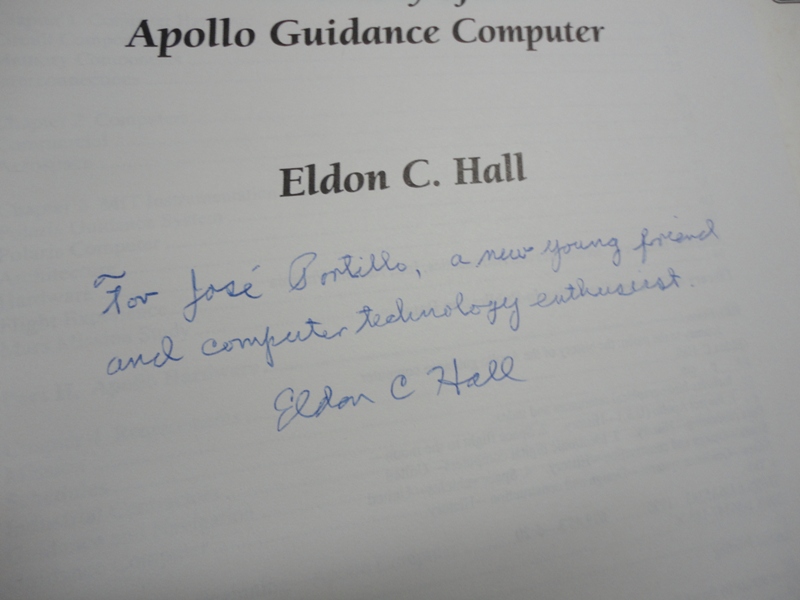 Apollo Guidance Computer
Eldon C. Hall
For José Portillo, a new young friend
and computer technology enthusiast.
Eldon C Hall